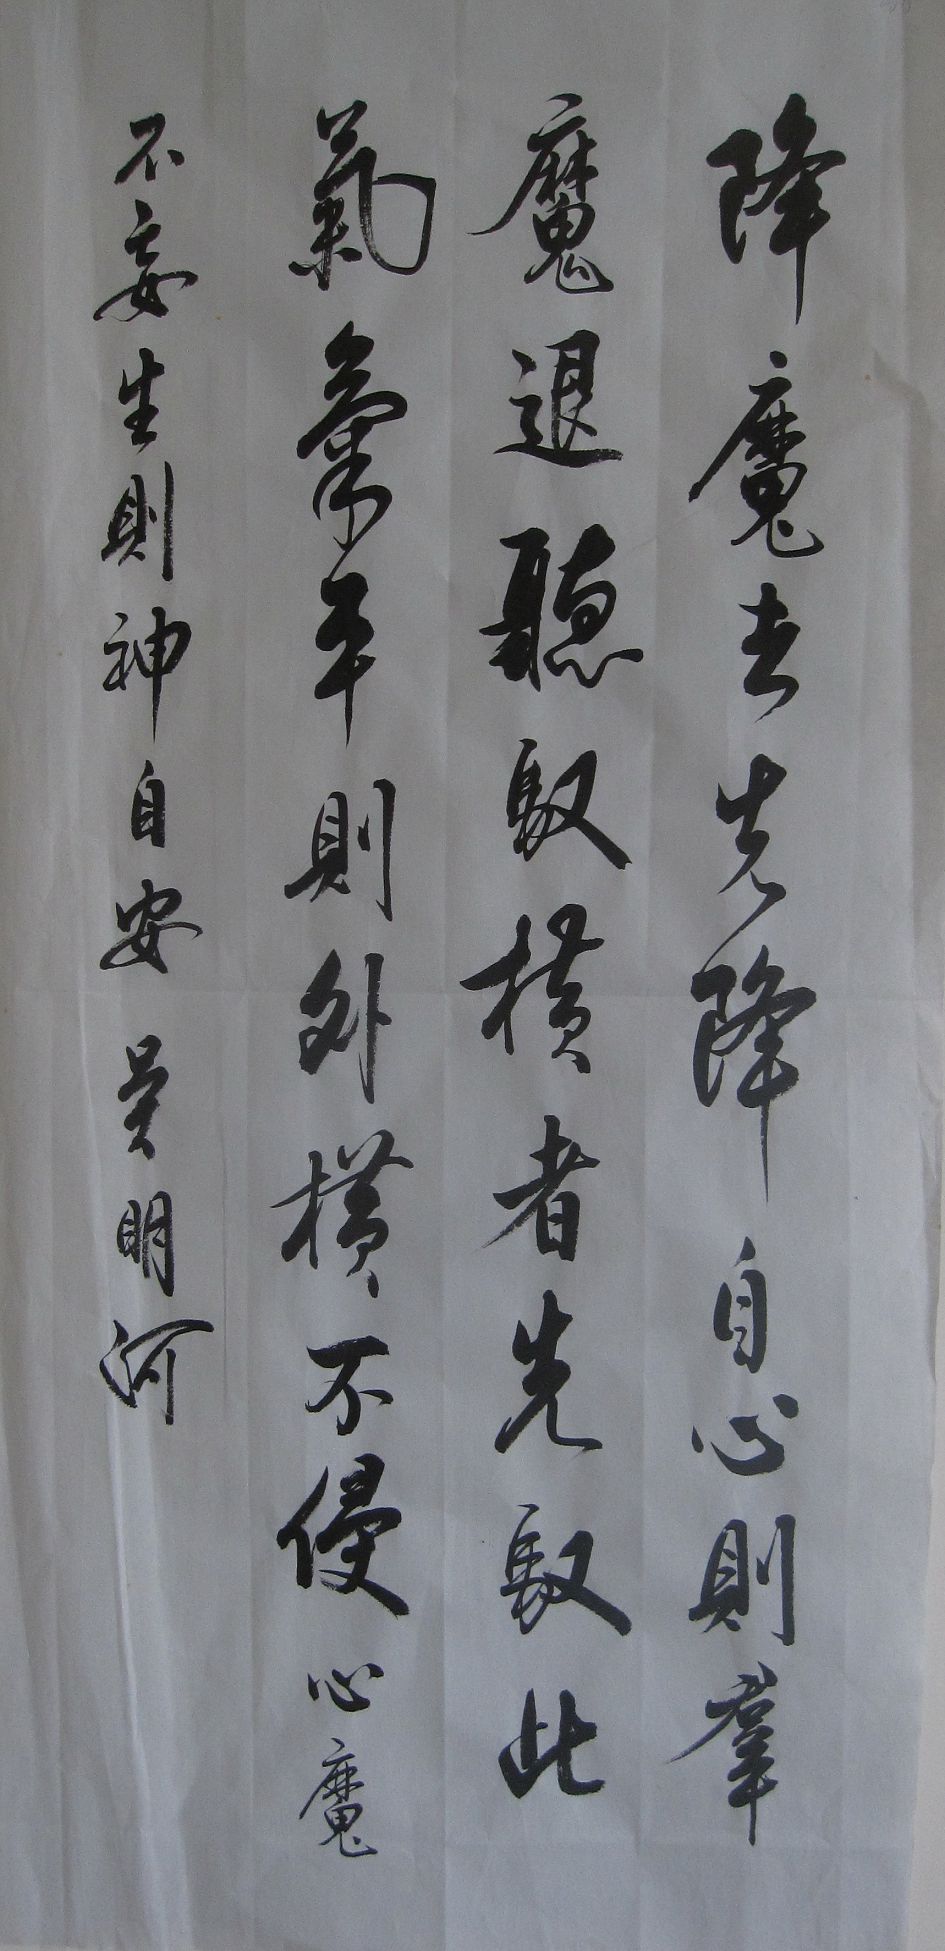 降魔者先降自心則羣
魔退聽馭橫者先馭此
氣氣平則外橫不侵心魔
不妄生則神自安 吴明河